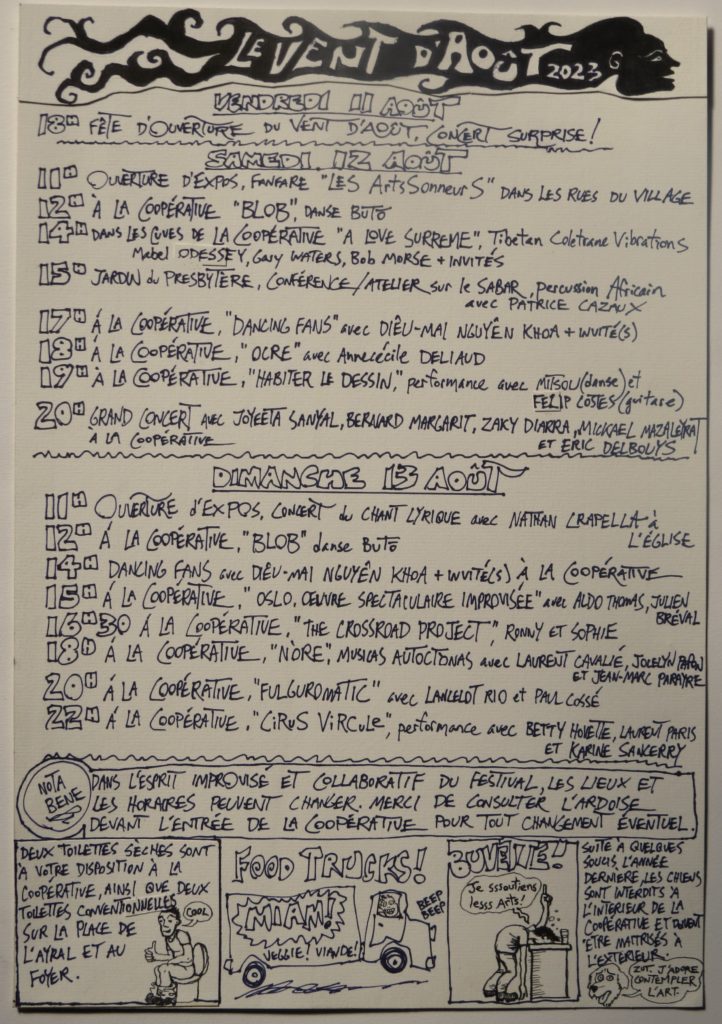 LE VENT D'AOÛT 2023
VENDREDI 11 AOÛT
18H FÊTE D'OUVERTURE DU VENT D'AOÛT, CONCERT SURPRISE!
SAMEDI 12 AOÛT
11H OUVERTURE D'EXPOS, FANFARE "LES ArtsSonneurS" DANS LES RUES DU VILLAGE
12H À LA COOPÉRATIVE "BLOB", DANSE BUTŌ
14H DANS LES CUVES DE LA COOPÉRATIVE "A LOVE SURREME", Tibetan Coletrane Vibrations
Mabel ODESSEY, Gary WATERS, Bob MORSE + INVITÉS
15H JARDIN du PRESBYTÈRE, CONFÉRENCE/ATELIER sur le SABAR, percussion Africain
avec PATRICE CAZAUX
17H À LA COOPÉRATIVE, "DANCING FANS" avec DIÊU-MAI NGUYÊN KHOA + INVITÉ(S)
18H À LA COOPÉRATIVE, "OCRE" avec Annecécile DELIAUD
19H À LA COOPÉRATIVE, "HABITER LE DESSIN," performance avec MITSOU (danse) et
FELIP COSTES (guitare)
20H GRAND CONCERT avec JOYEETA SANYAL, BERNARD MARGARIT, ZAKY DIARRA, MICKAEL MAZALEYRAT
À LA COOPÉRATIVE ET ERIC DELBOUYS
DIMANCHE 13 AOÛT
11H OUVERTURE d'EXPOS, CONCERT du CHANT LYRIQUE avec NATHAN CRAPELLA à
L'ÉGLISE
12H À LA COOPÉRATIVE, "BLOB" danse BUTŌ
14H DANCING FANS avec DIÊU-MAI NGUYÊN KHOA + INVITÉ(S) À LA COOPÉRATIVE
15H À LA COOPÉRATIVE, "OSLO, ŒUVRE SPECTACULAIRE IMPROVISÉE" avec ALDO THOMAS, JULIEN
BRÉVAL
16H30 À LA COOPÉRATIVE, "THE CROSSROAD PROJECT", RONNY ET SOPHIE
18H À LA COOPÉRATIVE, "N'ORE", MUSICAS AUTOCTONAS avec LAURENT CAVALIÉ, JOCELYN PAPON
ET JEAN-MARC PARAYRE
20H À LA COOPÉRATIVE, "FULGUROMATIC" avec LANCELOT RIO et PAUL COSSÉ
22H À LA COOPÉRATIVE, "CiRUS ViRCULe", performance avec BETTY HOVETTE, LAURENT PARIS
ET KARINE SANCERRY
NOTA
BENE
DANS L'ESPRIT IMPROVISÉ ET COLLABORATIF DU FESTIVAL, LES LIEUX ET
LES HORAIRES PEUVENT CHANGER. MERCI DE CONSULTER L'ARDOISE
DEVANT L'ENTRÉE DE LA COOPÉRATIVE POUR TOUT CHANGEMENT ÉVENTUEL.
DEUX TOILETTES SÈCHES SONT
À VOTRE DISPOSITION À LA
COOPÉRATIVE, AINSI QUE DEUX
TOILETTES CONVENTIONNELLES
SUR LA PLACE DE
L'AYRAL ET AU
FOYER.
COOL
FOOD TRUCKS!
MIAM!
VEGGIE! VIANDE!
BEEP
BEEP
BUVETTE!
Je sssoutiens
lesss Arts!
SUITE À QUELQUES
SOUCIS, L'ANNÉE
DERNIERE, LES CHIENS
SONT INTERDITS À
L'INTERIEUR DE LA
COOPÉRATIVE ET DOIVENT
ÊTRE MAITRISÉS À
L'EXTERIEUR.
ZUT. J'ADORE
CONTEMPLER
L'ART.